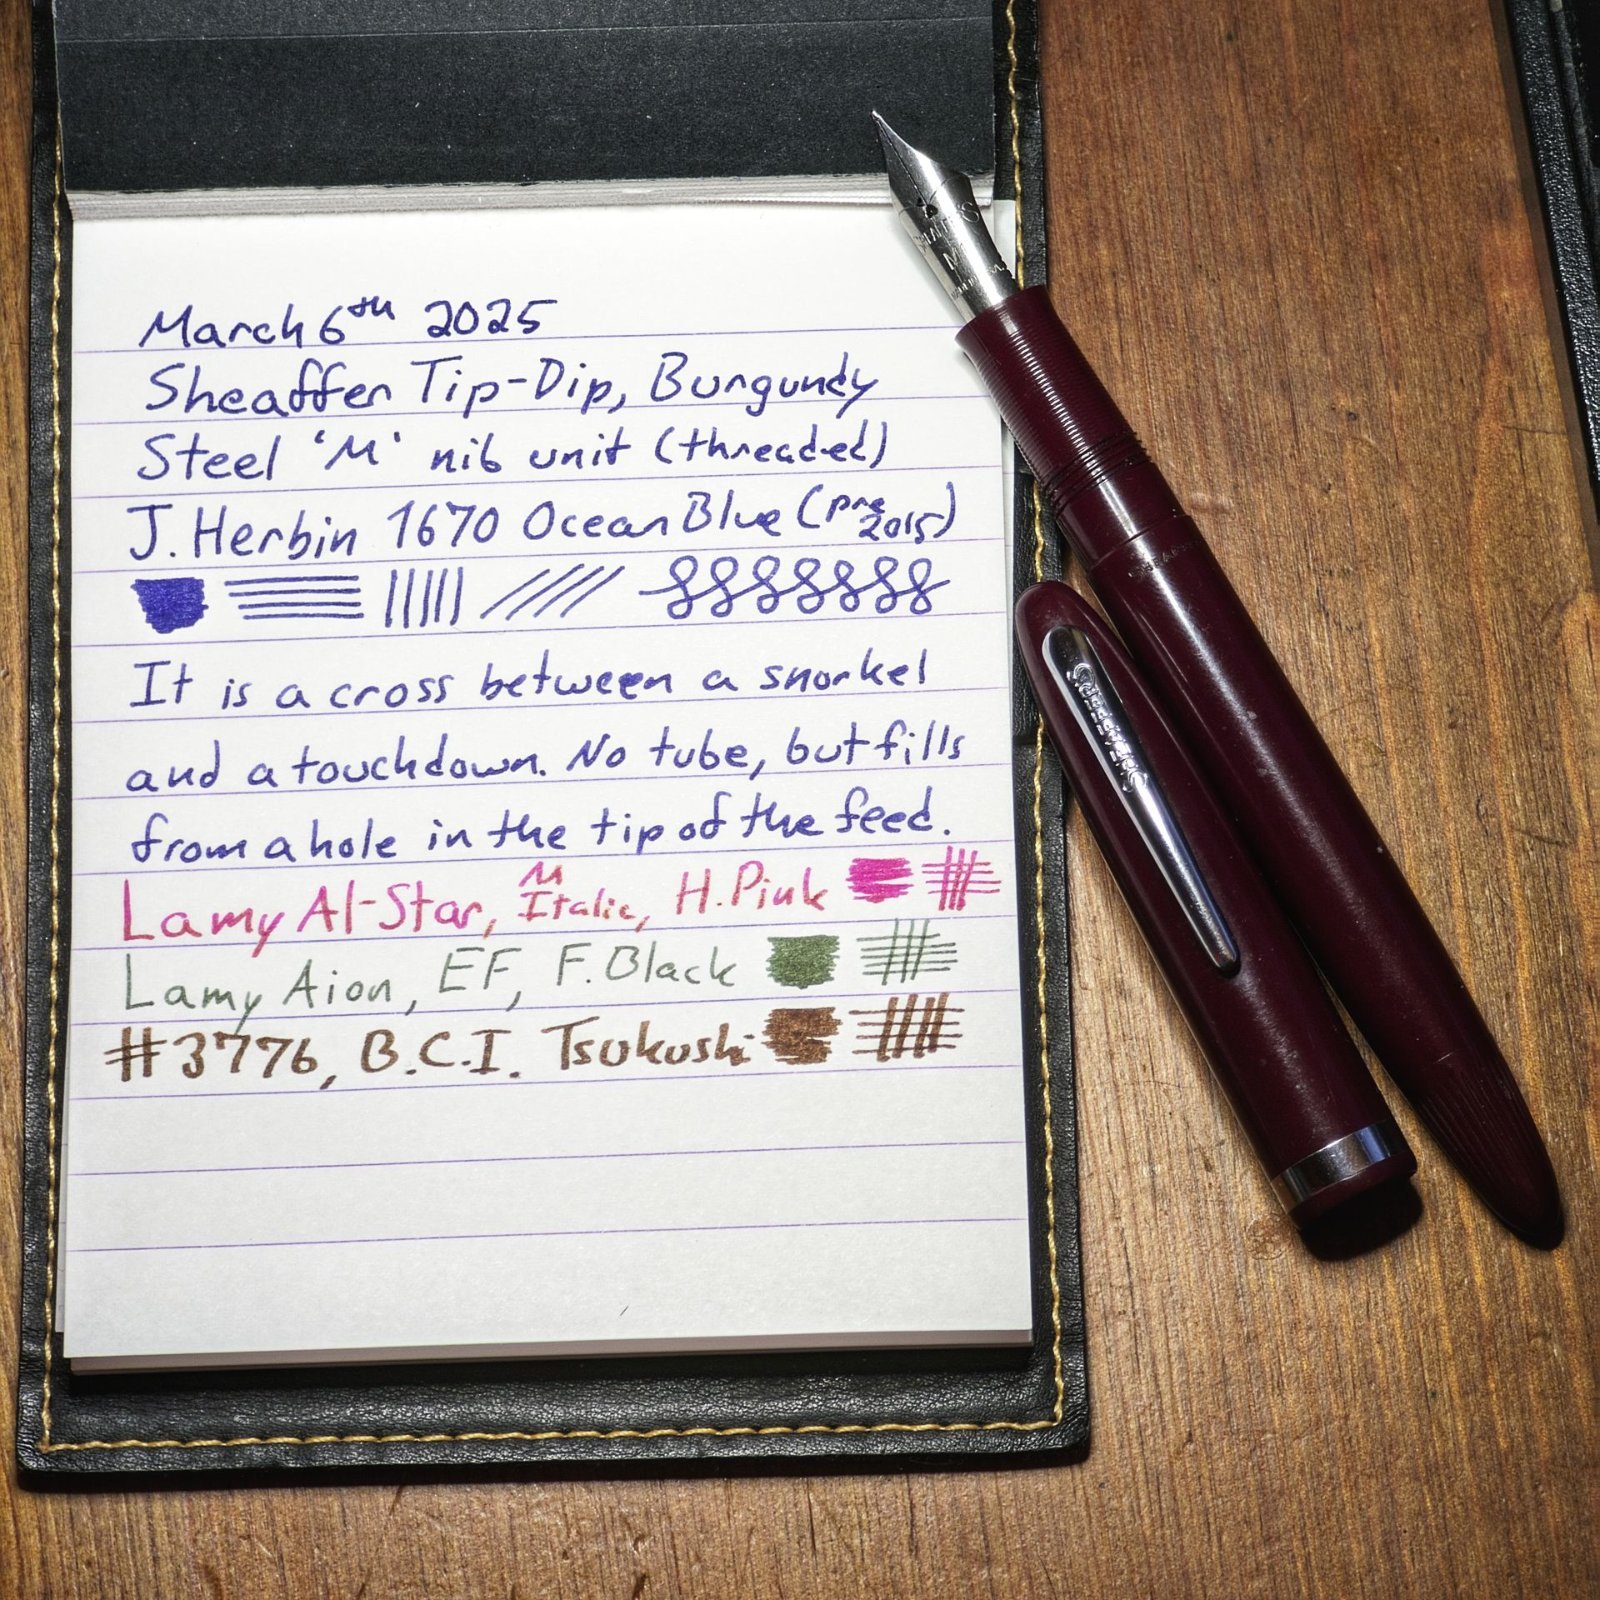 March 6th 2025
Sheaffer Tip-Dip, Burgundy
Steel 'M' nib unit (threaded)
J. Herbin 1670 Ocean Blue (pre 2015)
It is a cross between a snorkel
and a touchdown. No tube, but fills
from a hole in the tip of the feed.
Lamy Al-Star, M Italic, H. Pink
Lamy Aion, EF, F. Black
#3776, B.C.I. Tsukushi
SHEAFFER'S
M
SHEAFFER'S